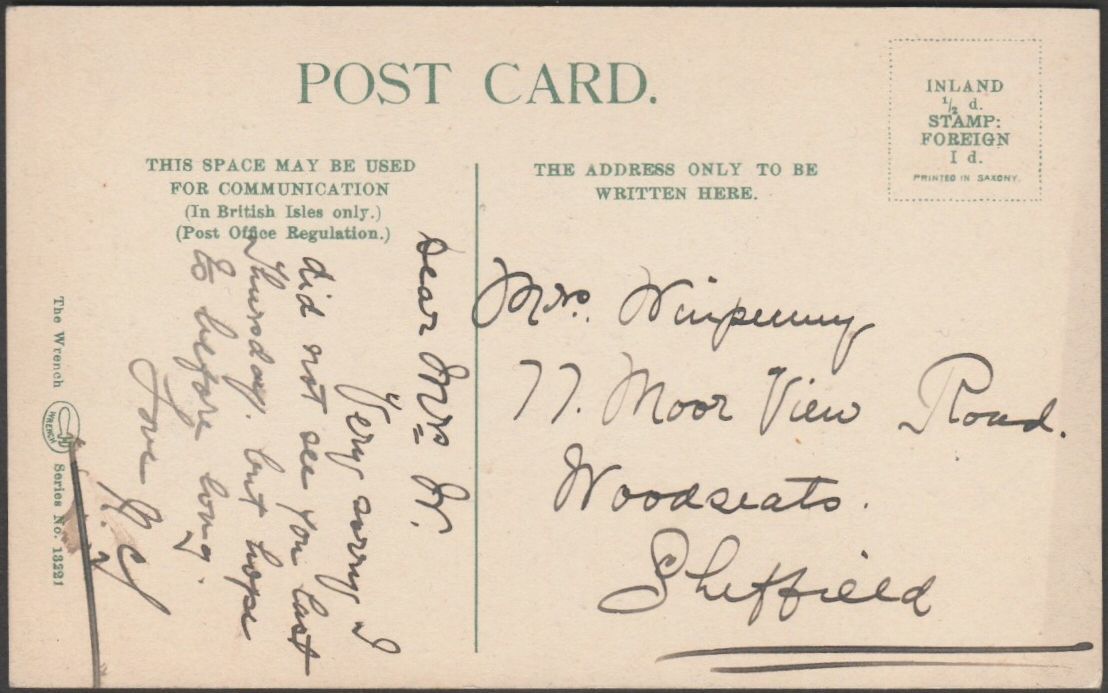 POST CARD.
INLAND
½ d.
STAMP:
FOREIGN
1 d.
PRINTED IN SAXONY.
THIS SPACE MAY BE USED
FOR COMMUNICATION
(In British Isles only.)
(Post Office Regulation.)
THE ADDRESS ONLY TO BE
WRITTEN HERE.
Dear Mrs W.
Very sorry I
did not see you last
Thursday. but hope
to before long.
Love
Mrs. Winpenny
77. Moor View Road.
Woodseats.
Sheffield
The Wrench
WRENCH
Series No. 13221